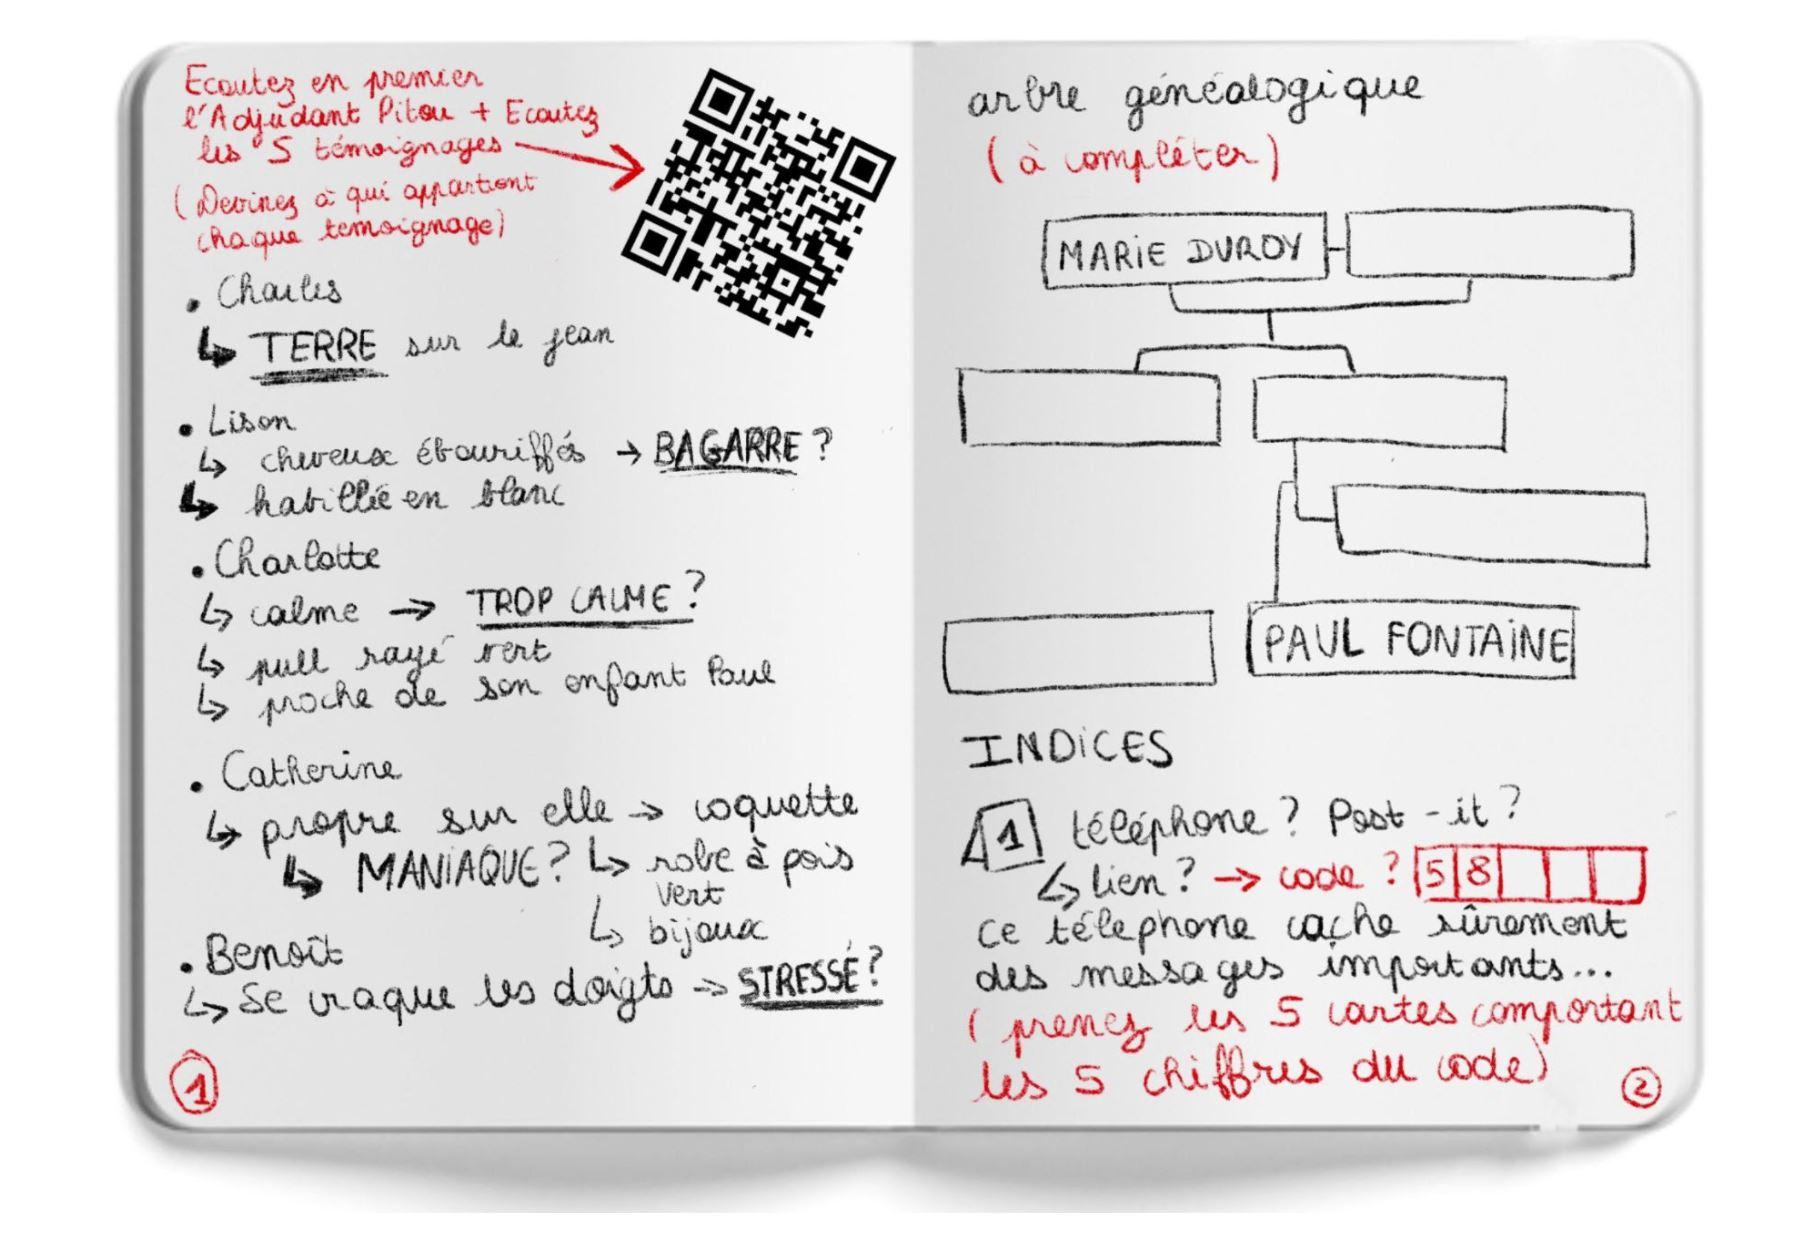 Ecoutez en premier
l'Adjudant Pitou + Ecoutez
les 5 témoignages
(Devinez à qui appartient
chaque temoignage)
• Charles
↳ TERRE sur le jean
• Lison
↳ cheveux ébouriffés → BAGARRE ?
↳ habillée en blanc
• Charlotte
↳ calme → TROP CALME ?
↳ pull rayé vert
↳ proche de son enfant Paul
• Catherine
↳ propre sur elle → coquette
↳ MANIAQUE ? ↳ robe à pois
vert
↳ bijoux
• Benoît
↳ Se craque les doigts → STRESSÉ ?
1
arbre généalogique
(à compléter)
MARIE DUROY
PAUL FONTAINE
INDICES
1 téléphone ? Post-it ?
↳ lien ? → code ? 5 8
Ce télephone cache sûrement
des messages importants...
(prenez les 5 cartes comportant
les 5 chiffres du code)
2